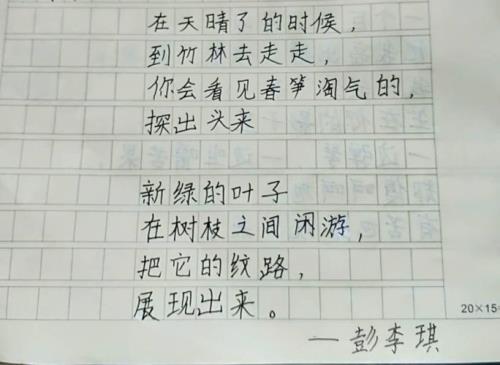 在天晴了的时候，
到竹林去走走，
你会看见春笋淘气的，
探出头来
新绿的叶子
在树枝之间闲游，
把它的纹路，
展现出来。
20×15
—彭李琪